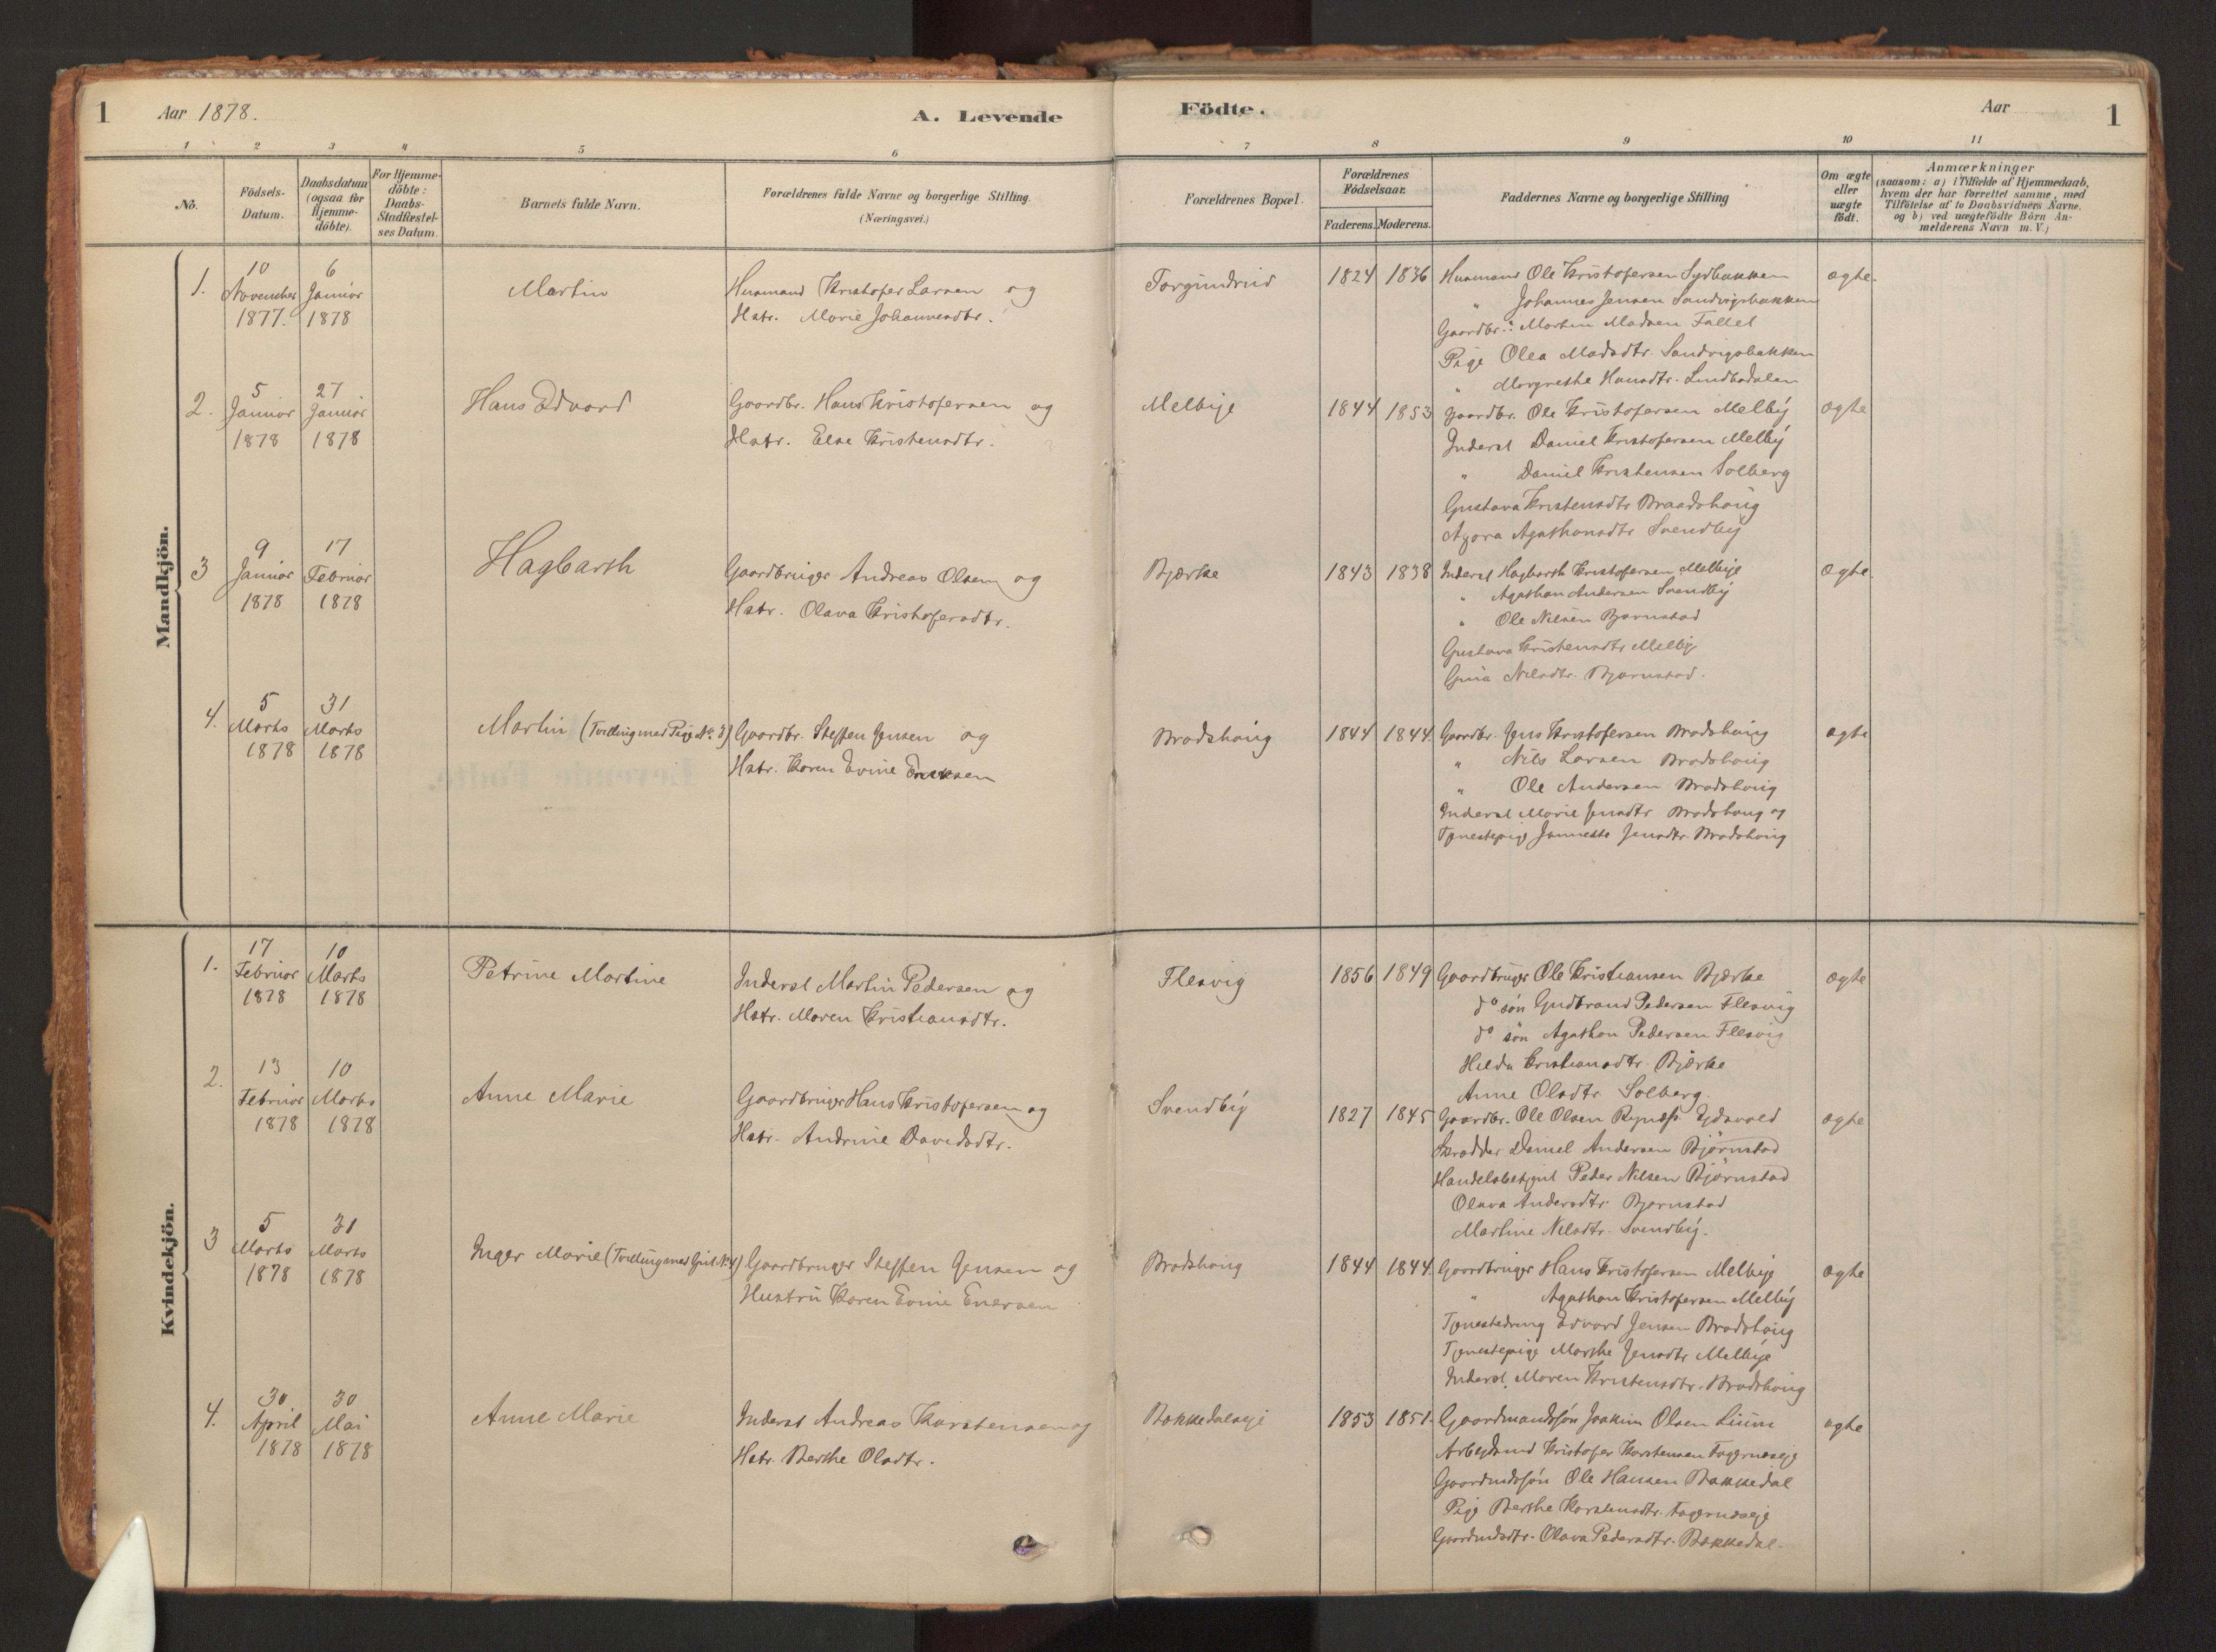 1 Aar 1878. A. Levende Födte. Aar 1
1 2 3 4 5 6 7 8 9 10 11
No.
Födsels-
Datum.
Daabsdatum
(ogsaa for
Hjemme-
döbte).
For Hjemme-
döbte:
Daabs-
Stadfæstel-
ses Datum.
Barnets fulde Navn.
Forældrenes fulde Navne og borgerlige Stilling.
(Næringsvei.)
Forældrenes Bopæl.
Forældrenes
Födselsaar.
Faderens. Moderens.
Faddernes Navne og borgerlige Stilling
Om ægte
eller
uægte
födt.
Anmærkninger
(saasom: a) i Tilfælde af Hjemmedaab,
hvem der har forrettet samme, med
Tilföielse af to Daabsvidners Navne,
og b) ved uægtefödte Börn An-
melderens Navn m. V.)
Mandkjön.
1.
10
November
1877.
6
Januar
1878
Martin
Husmand Kristofer Larsen og
Hstr. Marie Johannesdtr.
Torgundrud
1824 1836
Husmand Ole Kristofersen Sydbakken
" Johannes Jensen Sandvigsbakken
Gaardbr: Martin Madsen Fallet
Pige Olea Madsdtr. Sandvigsbakken
" Margrethe Hansdtr. Lindbadalen
ægte.
2.
5
Januar
1878
27
Januar
1878
Hans Edvard
Gaardbr. Hans Kristofersen og
Hstr. Else Kristensdtr.
Melbye
1844 1853
Gaardbr. Ole Kristofersen Melby
Inderst Daniel Kristofersen Melby
" Daniel Kristensen Solberg
Gustava Kristensdtr Braadshaug
Agathonsdtr Svendby
ægte
3
9
Januar
1878
17
Februar
1878
Hagbarth
Gaardbruger Andreas Olsen og
Hstr. Olava Kristofersdtr.
Bjørke
1843 1838
Inderst Hagbarth Kristofersen Melbye
" Agathon Andersen Svendby
" Ole Nilsen Bjørnstad
Gustava Kristensdtr Melby
Gina Nilsdtr. Bjørnstad.
ægte.
4.
5
Marts
1878
31
Marts
1878
Martin (Tvilling med Pige No. 3)
Gaardbr. Steffen Jensen og
Hstr. Karen Evine
Bradshaug
1844 1844.
Gaardbr. Jens Kristofersen Bradshaug
" Nils Larsen Bradshaug
" Ole Andersen Bradshaug
Inderst Marie Jensdtr Bradshaug og
Tjenestepige Jannette Jensdtr. Bradshaug
ægte
Kvindekjön.
1.
17
Februar
1878
10
Marts
1878
Petrine Martine
Inderst Martin Pedersen og
Hstr. Maren Kristiansdtr.
Flesvig
1856 1849
Gaardbruger Ole Kristiansen Bjørke
do søn Gudbrand Pedersen Flesvig
do søn Agathon Pedersen Flesvig
Hilda Kristiansdtr. Bjørke
Anne Olsdtr Solberg.
ægte
2.
13
Februar
1878
10
Marts
1878
Anne Marie
Gaardbruger Hans Kristofersen og
Hstr. Andrine Davidsdtr.
Svendby
1827 1845
Gaardbr. Ole Olsen Eidsvold
Skrædder Daniel Andersen Bjørnstad
Handelsbetjent Peder Nilsen Bjørnstad
Olava Andersdtr. Bjørnstad
Martine Nilsdtr. Svendby.
ægte
3
5
Marts
1878
31
Marts
1878
Inger Marie (Tvilling med Gut No. 4)
Gaardbruger Steffen Jensen og
Hustru Karen Evine Enersen
Bradshaug
1844 1844.
Gaardbruger Hans Kristofersen Melbye
" Agathon Kristofersen Melby
Tjenestedreng Edvard Jensen Bradshaug
Tjenestepige Marthe Jensdtr Melbye
Inderst Maren Kristensdtr. Bradshaug
ægte
4.
30
April
1878
30
Mai
1878
Anne Marie
Inderst Andreas Karstensen og
Hstr. Berthe Olsdtr.
Bakkedalseje
1853 1851.
Gaardmandssøn Joakim Olsen Lium
Kristofer Karstensen Fagernæseje
Gaardmdssøn Ole Hansen Bakkedal
Pige Berthe Karstensdtr. Fagernæseje
Gaardmdsdtr. Olava Pedersdtr. Bakkedal.
ægte